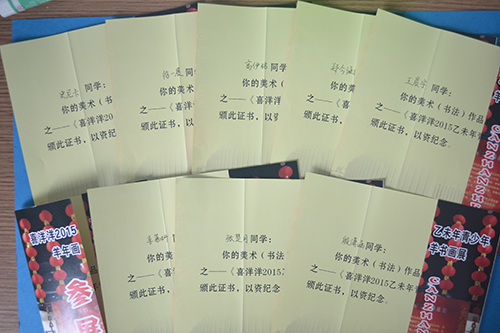 同学：
你的美术（书
之——《喜洋洋20
颁此证书，以资
同学：
你的美术（
之——《喜洋
颁此证书，以
同学：
你的美术（
之——《喜洋洋
颁此证书，以资
同学：
你的美术（
之——《喜洋
颁此证书，以
王晨宇同学：
你的美术（书法）作品
之——《喜洋洋2015乙未年
颁此证书，以资纪念。
同学：
你的美术（书法
之——《喜洋洋2015
颁此证书，以资纪
同学：
你的美术（书法）
之——《喜洋洋2015
颁此证书，以资纪念
同学：
你的美术（书法）作品
之——《喜洋洋2015乙未年
颁此证书，以资纪念。
喜洋洋2015
羊年画
参展
乙未年青少年
羊书画展
CANZHANZH